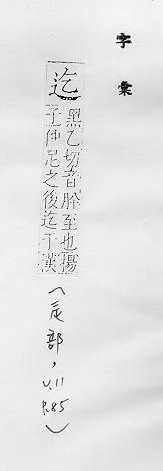 字彙
迄
黑乙切音肸至也揚
子仲尼之後迄于漢
(辵部,
V.11
P.85)